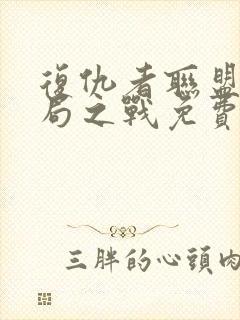 復仇者聯盟
局之戰免費
三胖的心頭肉